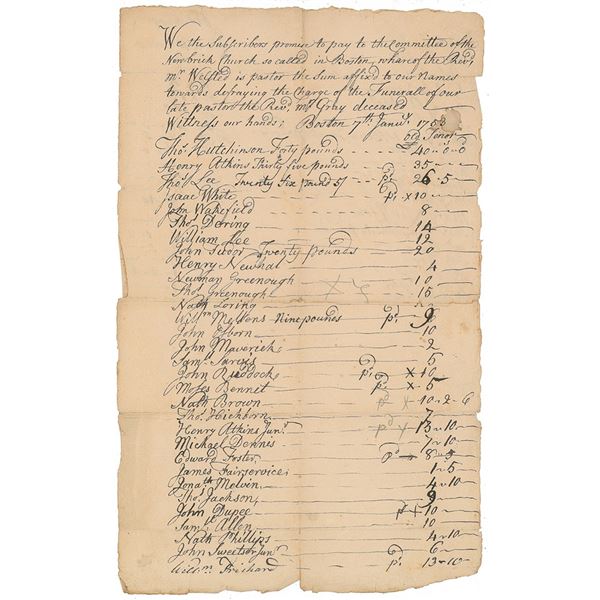 We the Subscribers promise to pay to the Committee of the
New brick Church so called in Boston, whereof the Revd
mr Welsted is pastor the Sum affixed to our Names
towards defraying the Charge of the Funerall of our
late pastor the Revd mr Gray deceased
Wittness our hands; Boston 7th Janur 1753
old Tenor
Thos Hutchinson Forty pounds £40 " 0 - 0
Henry Atkins Thirty five pounds 35
Thos Lee Twenty Six pounds 5/ pd 26 - 5
Isaac White pd x 10
John Wakefield 8
Thos Dering 14
William Lee 12
John Twenty pounds 20
Henry Newhal 4
Newman Greenough 10
Thos Greenough 15
Nath Loring
Willm Merrens Nine pounds pd 9
John Osborn 10
John Maverick 2
Saml Jarvis 5
John Ruddock pd x 10
Moses Bennit pd x 5
Nath Brown pd x 10 " 2 - 6
Thos Hichborn 7
Henry Atkins Junr pd x 13 " 10
Michael Dennis 7 " 10
Edward Foster pd 8 " 5
James Fairservice; 1 " 5
Jonath Melvin 4 " 10
Thos Jackson, 9
John Dupee pd x 10
Saml Allen 10
Nath Phillips 4 " 10
John Sweetser Junr pd 6
Willm Prichard pd 13 " 10